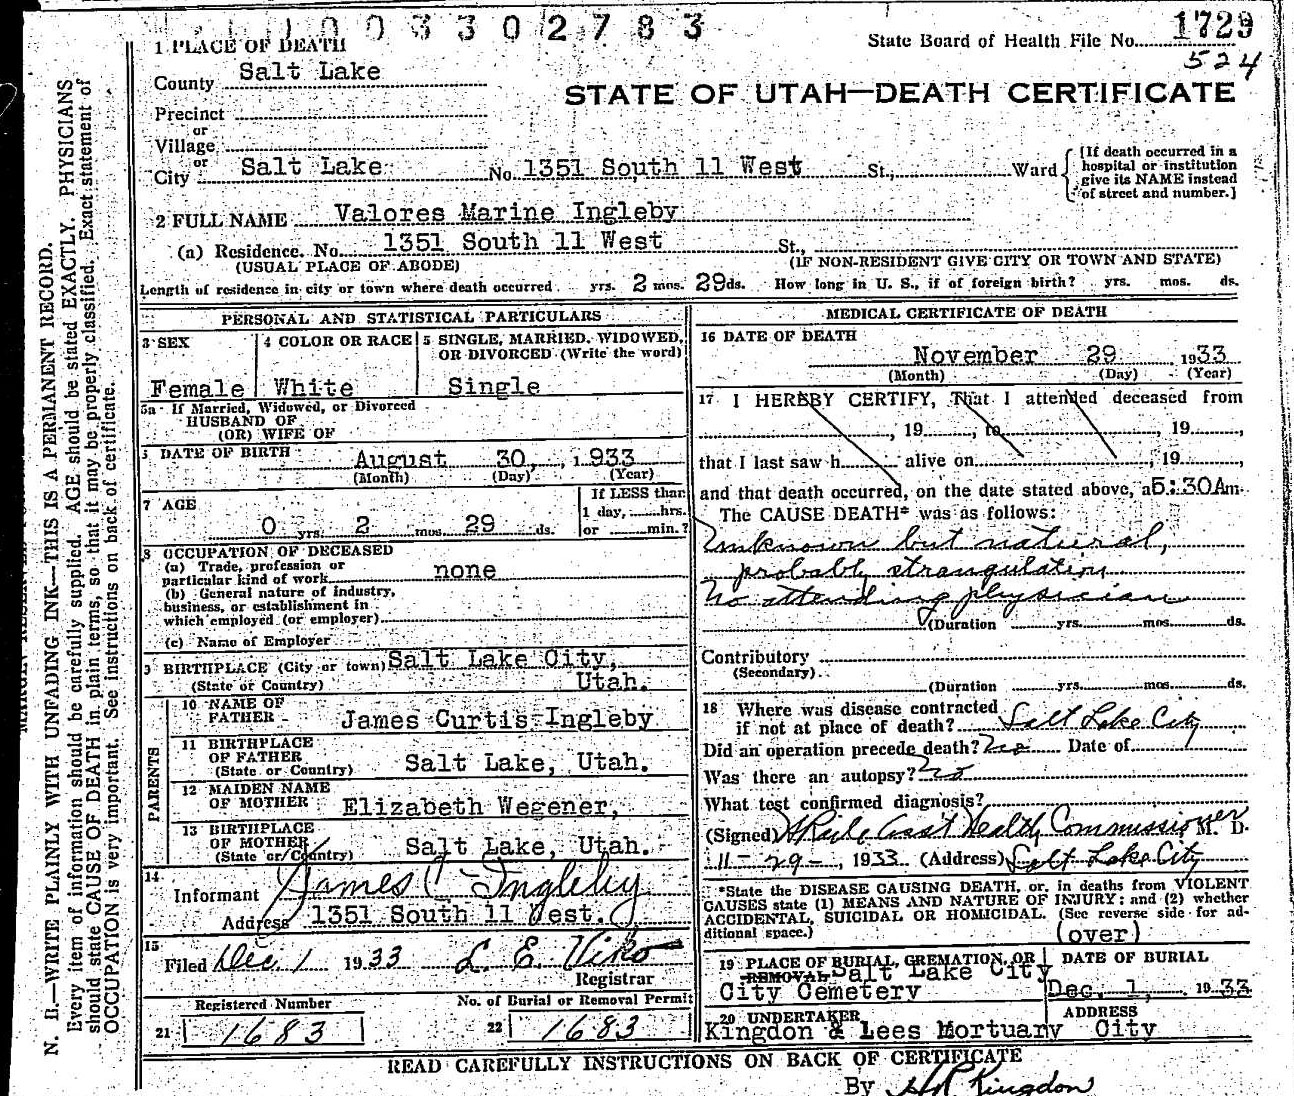 1003302783
State Board of Health File No. 1729
524
1 PLACE OF DEATH
County Salt Lake
STATE OF UTAH—DEATH CERTIFICATE
Precinct
or
Village
or
City Salt Lake No. 1351 South 11 West St., Ward
{If death occurred in a
hospital or institution
give its NAME instead
of street and number.}
2 FULL NAME Valores Marine Ingleby
(a) Residence. No. 1351 South 11 West St.,
(USUAL PLACE OF ABODE) (IF NON-RESIDENT GIVE CITY OR TOWN AND STATE)
Length of residence in city or town where death occurred yrs. 2 mos. 29 ds. How long in U. S., if of foreign birth? yrs. mos. ds.
PERSONAL AND STATISTICAL PARTICULARS
3 SEX 4 COLOR OR RACE 5 SINGLE, MARRIED, WIDOWED,
OR DIVORCED (Write the word)
Female White Single
5a If Married, Widowed, or Divorced
HUSBAND OF
(OR) WIFE OF
DATE OF BIRTH August 30, 1933
(Month) (Day) (Year)
7 AGE
0 yrs. 2 mos. 29 ds.
If LESS than
1 day, hrs.
or min.?
8 OCCUPATION OF DECEASED
(a) Trade, profession or
particular kind of work none
(b) General nature of industry,
business, or establishment in
which employed (or employer)
(c) Name of Employer
9 BIRTHPLACE (City or town) Salt Lake City,
(State or Country) Utah.
PARENTS
10 NAME OF
FATHER James Curtis Ingleby
11 BIRTHPLACE
OF FATHER
(State or Country) Salt Lake, Utah.
12 MAIDEN NAME
OF MOTHER Elizabeth Wegener,
13 BIRTHPLACE
OF MOTHER
(State or Country) Salt Lake, Utah.
14
Informant James C Ingleby
Address 1351 South 11 West.
15
Filed Dec 1 1933 L. E. Viko
Registrar
Registered Number No. of Burial or Removal Permit
21 1683 22 1683
MEDICAL CERTIFICATE OF DEATH
16 DATE OF DEATH
November 29 1933
(Month) (Day) (Year)
17 I HEREBY CERTIFY, That I attended deceased from
, 19 , to , 19 ,
that I last saw h alive on , 19 ,
and that death occurred, on the date stated above, a 5:30A m.
The CAUSE DEATH* was as follows:
Unknown but natural,
probably strangulation
No attending physician
(Duration yrs. mos. ds.
Contributory
(Secondary)
(Duration yrs. mos. ds.
18 Where was disease contracted
if not at place of death? Salt Lake City
Did an operation precede death? No Date of
Was there an autopsy? no
What test confirmed diagnosis?
(Signed) Health Commissioner M. D.
11-29-, 1933 (Address) Salt Lake City
*State the DISEASE CAUSING DEATH, or, in deaths from VIOLENT
CAUSES state (1) MEANS AND NATURE OF INJURY; and (2) whether
ACCIDENTAL, SUICIDAL OR HOMICIDAL. (See reverse side for ad-
ditional space.) (over)
19 PLACE OF BURIAL, CREMATION, OR DATE OF BURIAL
REMOVAL Salt Lake City
City Cemetery Dec. 1, 1933
20 UNDERTAKER ADDRESS
Kingdon & Lees Mortuary City
READ CAREFULLY INSTRUCTIONS ON BACK OF CERTIFICATE
By Kingdon
N. B.—WRITE PLAINLY WITH UNFADING INK—THIS IS A PERMANENT RECORD.
Every item of information should be carefully supplied. AGE should be stated EXACTLY. PHYSICIANS
should state CAUSE OF DEATH in plain terms, so that it may be properly classified. Exact statement of
OCCUPATION is very important. See instructions on back of certificate.